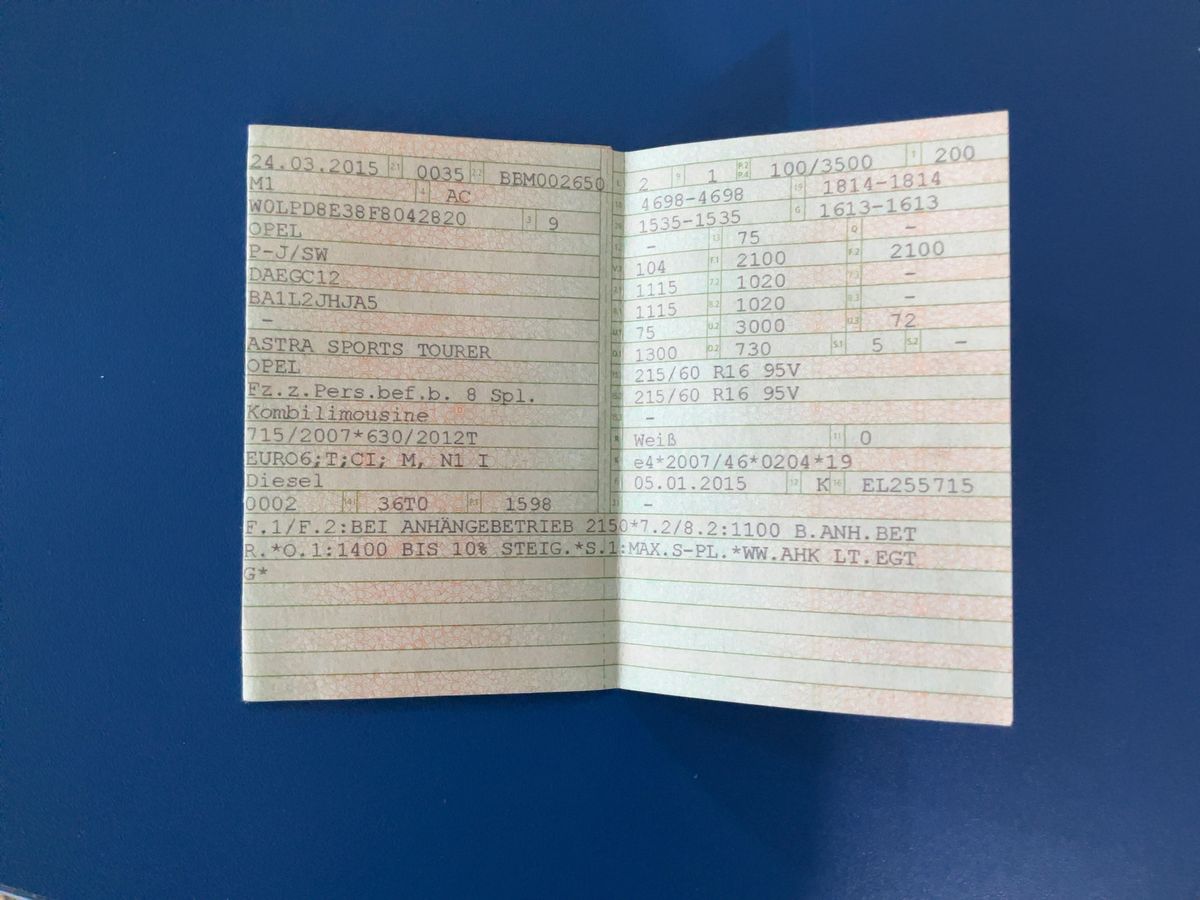 24.03.2015 2.1 0035 2.2 BBM002650
M1 4 AC
W0LPD8E38F8042820 3 9
OPEL
P-J/SW
DAEGC12
BA1L2JHJA5
-
ASTRA SPORTS TOURER
OPEL
Fz.z.Pers.bef.b. 8 Spl.
Kombilimousine
715/2007*630/2012T
EURO6;T;CI; M, N1 I
Diesel
0002 14.1 36T0 P.1 1598
L 2 9 1 P.2 P.4 100/3500 T 200
18 4698-4698 19 1814-1814
1535-1535 G 1613-1613
- 13 75 Q -
V.7 104 F.1 2100 F.2 2100
7.1 1115 7.2 1020 7.3 -
8.1 1115 8.2 1020 8.3 -
U.1 75 U.2 3000 U.3 72
O.1 1300 O.2 730 S.1 5 S.2 -
215/60 R16 95V
215/60 R16 95V
-
R Weiß 11 0
K e4*2007/46*0204*19
6 05.01.2015 17 K 16 EL255715
21 -
F.1/F.2:BEI ANHÄNGEBETRIEB 2150*7.2/8.2:1100 B.ANH.BET
R.*O.1:1400 BIS 10% STEIG.*S.1:MAX.S-PL.*WW.AHK LT.EGT
G*